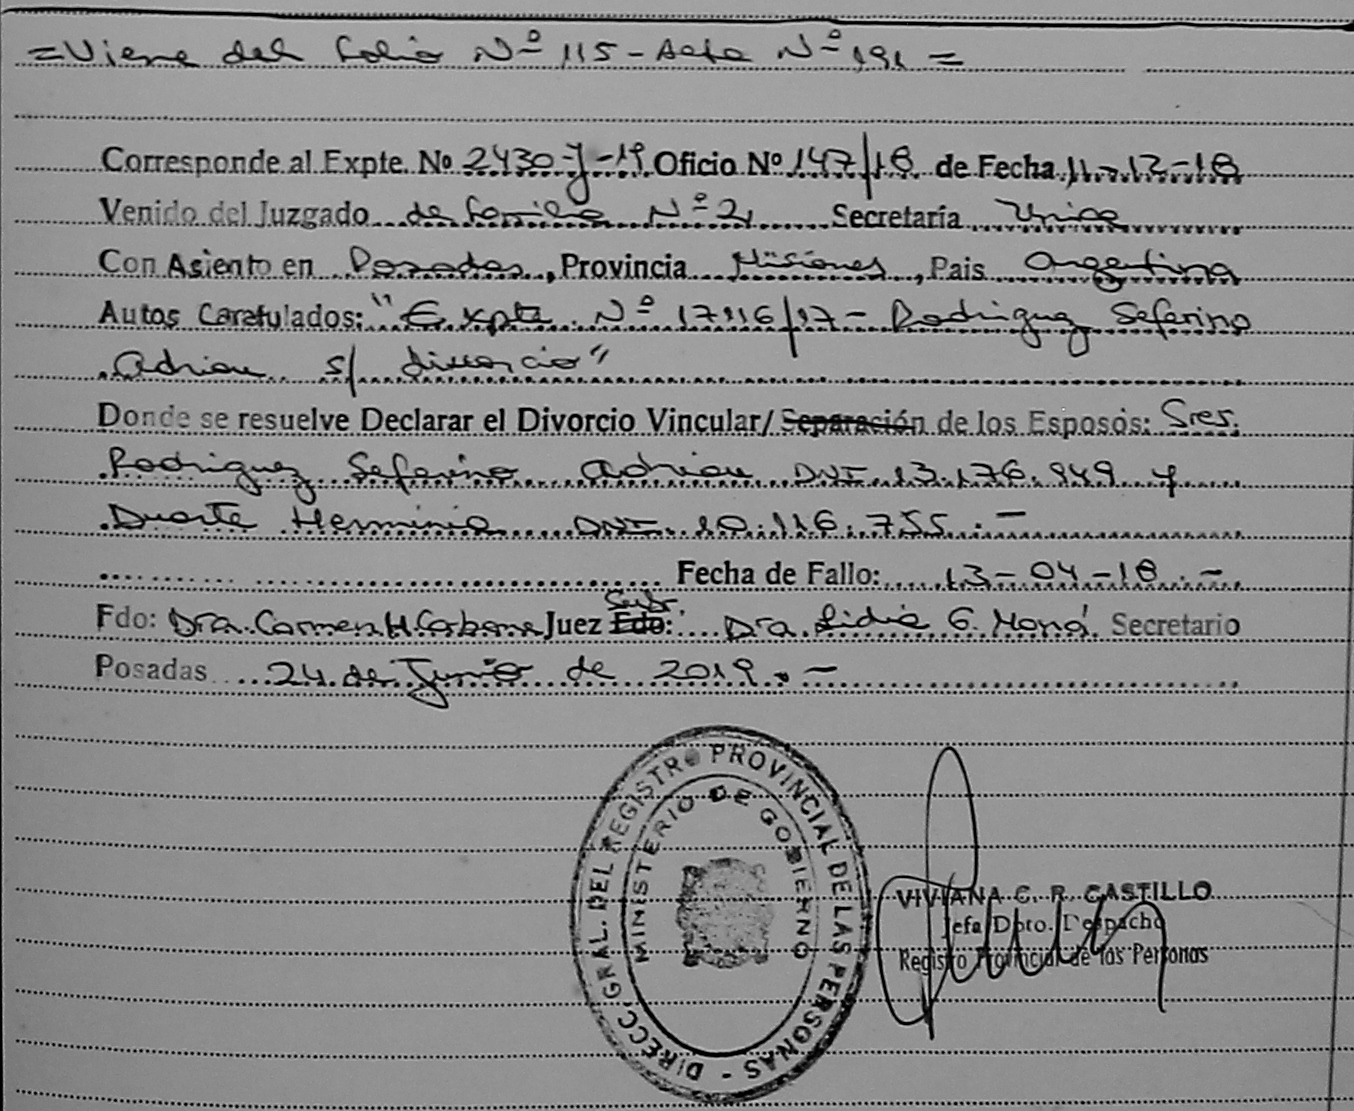 =Viene del Folio Nº 115 - Acta Nº 191 =
Corresponde al Expte. Nº 2430-Y-19 Oficio Nº 147/18 de Fecha 11-12-18
Venido del Juzgado de Familia Nº 2 Secretaría Unica
Con Asiento en Posadas, Provincia Misiones, Pais Argentina
Autos Caratulados: "Expte Nº 17116/17 - Rodriguez Seferino
Adrian s/ divorcio"
Donde se resuelve Declarar el Divorcio Vincular/ Separación de los Esposos: Sres.
Rodriguez Seferino Adrian DNI 13.176.949 y
Duarte Herminia DNI 10.116.755.-
Fecha de Fallo: 13-04-18.-
Fdo: Dra. Carmen H. Carbone Juez Subr. Fdo: Dra. Lidia G. Secretario
Posadas 24 de Junio de 2019.-
DIRECC. GRAL. DEL REGISTRO PROVINCIAL DE LAS PERSONAS -
MINISTERIO DE GOBIERNO
VIVIANA C. R. CASTILLO
Jefa Dpto. Despacho
Registro Provincial de las Personas